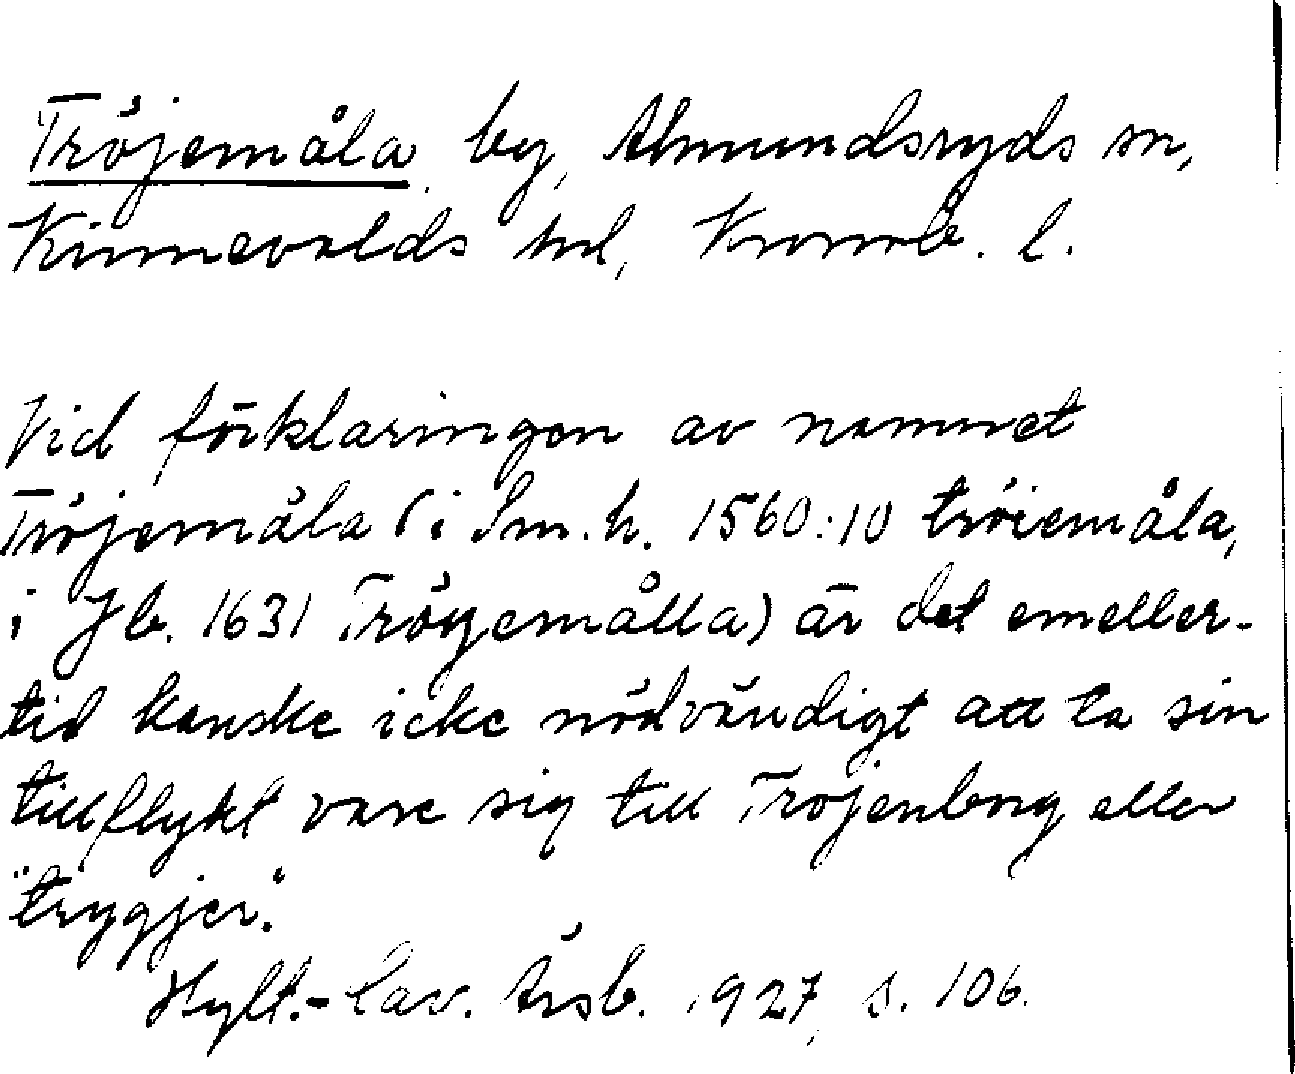 Tröjemåla, by, Almundsryds sn,
Kinnevalds hd, Kronob. l.
Vid förklaringen av namnet
Tröjemåla (i Sm. h. 1560:10 tröiemåla,
i Jb. 1631 Tröyemålla) är det emeller-
tid kanske icke nödvändigt att ta sin
tillflykt vare sig till Trojenborg eller
"trygjer."
Hylt.-Cav. Årsb. 1927, s. 106.